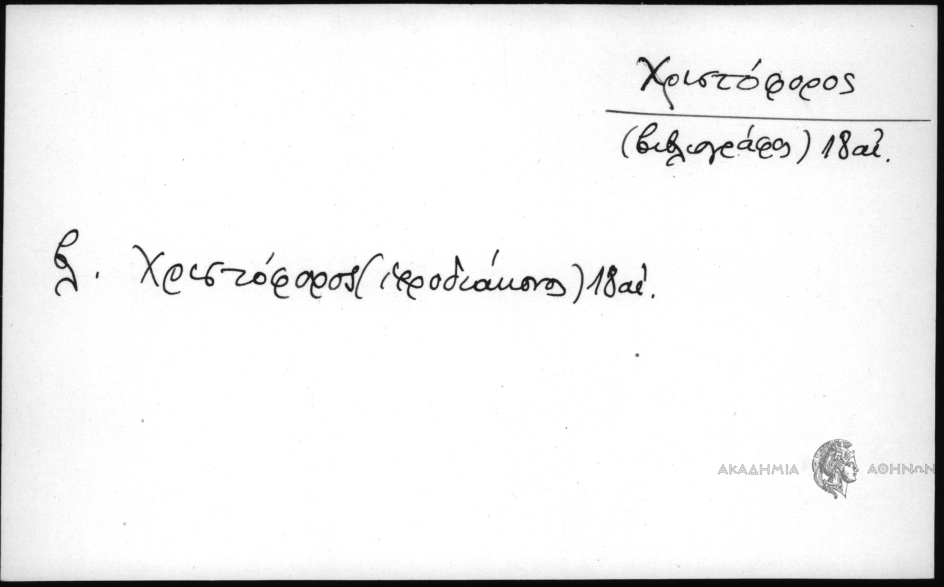 Χριστόφορος
(βιβλιογράφος) 18 αἰ.
βλ. Χριστόφορος (ἱεροδιάκονος) 18 αἰ.
ΑΚΑΔΗΜΙΑ ΑΘΗΝΩΝ